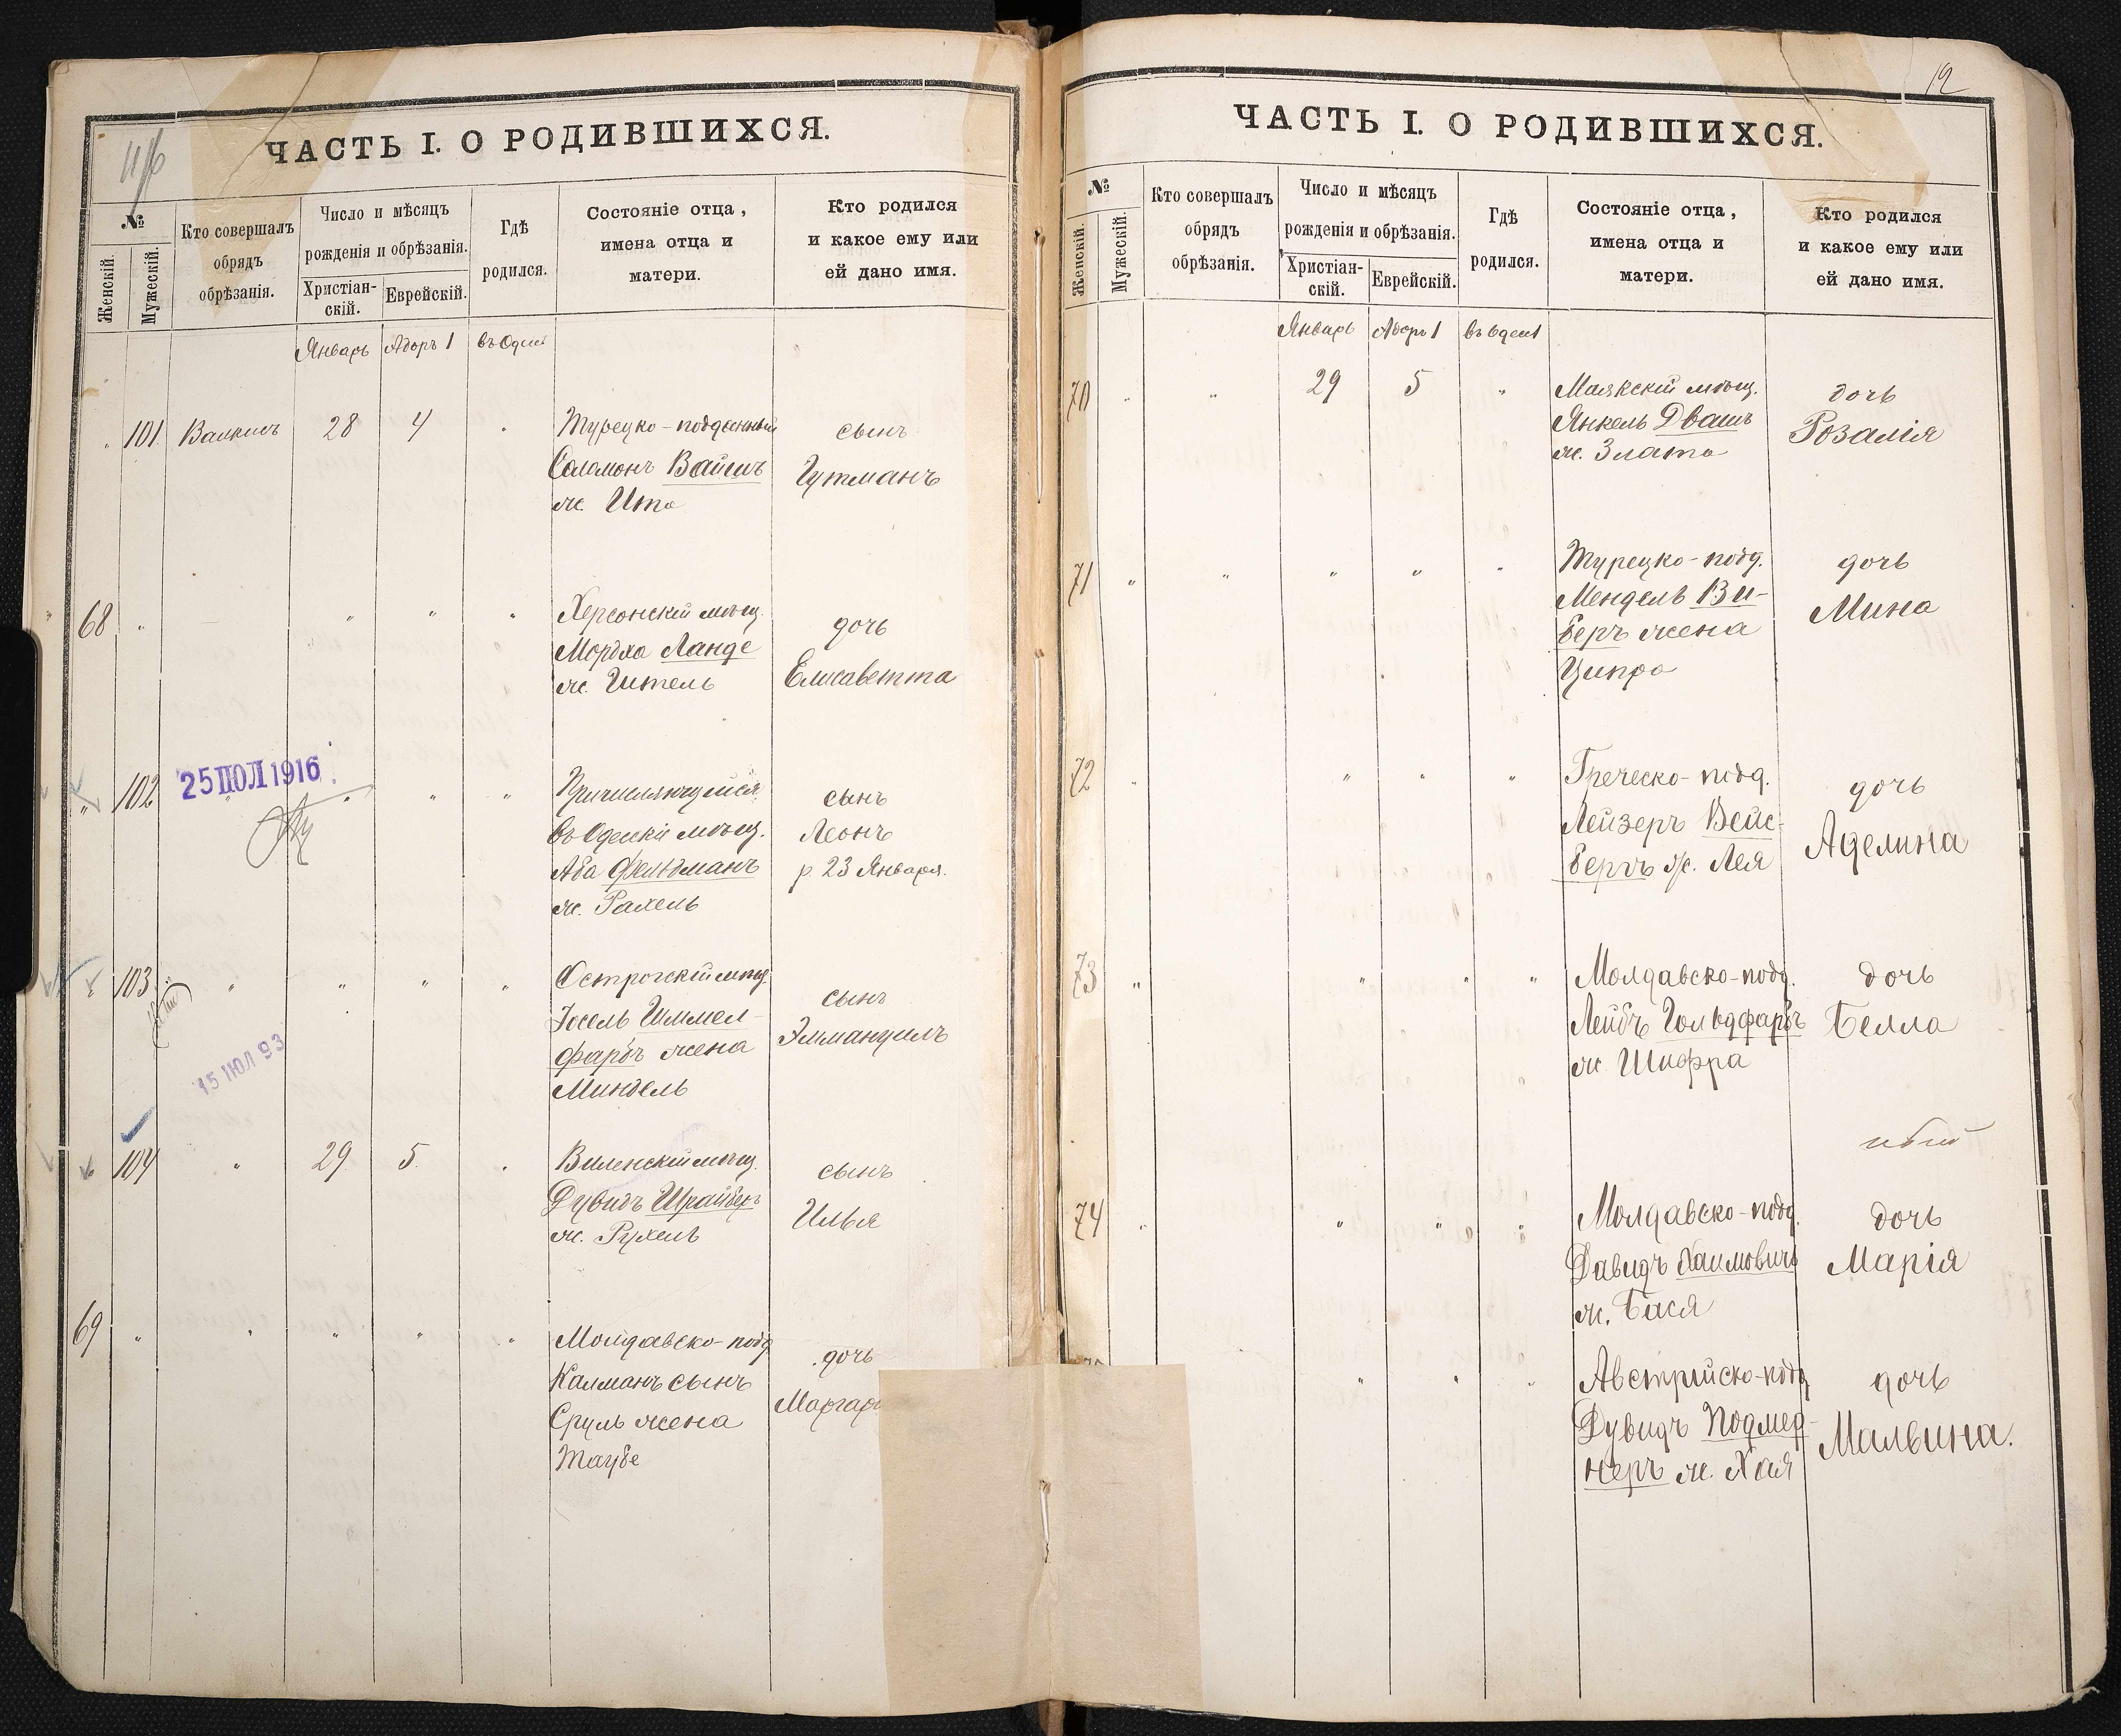 ЧАСТЬ I. О РОДИВШИХСЯ.
№
Женскій.
Мужескій.
Кто совершалъ
обрядъ
обрѣзанія.
Число и мѣсяцъ
рожденія и обрѣзанія.
Христіан-
скій.
Еврейскій.
Гдѣ
родился.
Состояніе отца,
имена отца и
матери.
Кто родился
и какое ему или
ей дано имя.
Январь Адоръ 1
" 101 28 4 "
Турецко-подданный
Соломонъ
ж. Ита
сынъ
Гутманъ
68 " " " "
Херсонскій мѣщ.
Мордко Ланде
ж. Гитель
дочь
Елисаветта
" 102 " " " "
25 ІЮЛ 1916
Причисляющійся
въ Одесскіе мѣщ.
Аба Фельдманъ
ж. Рахель
сынъ
Леонъ
р. 23 Января.
" 103 " " " "
15 ІЮЛ 93
Острогскій мѣщ.
Іосель Шимел-
фарбъ жена
Миндель
сынъ
Эммануилъ
" 104 " 29 5 "
Виленскій мѣщ.
Дувидъ Шрайберъ
ж. Рухель
сынъ
Илья
69 " " " " "
Молдавско-подд.
Калманъ сынъ
Сруль жена
Таубе
дочь
12
ЧАСТЬ I. О РОДИВШИХСЯ.
№
Женскій.
Мужескій.
Кто совершалъ
обрядъ
обрѣзанія.
Число и мѣсяцъ
рожденія и обрѣзанія.
Христіан-
скій.
Еврейскій.
Гдѣ
родился.
Состояніе отца,
имена отца и
матери.
Кто родился
и какое ему или
ей дано имя.
Январь Адоръ 1
70 " " 29 5 "
Маякскій мѣщ.
Янкель
ж. Злата
дочь
Розалія
71 " " " " "
Турецко-подд.
Мендель Ви-
беръ жена
Ципра
дочь
Мина
72 " " " "
Греческо-подд.
Лейзеръ Вейс-
бергъ ж. Лея
дочь
Аделина
73 " " " "
Молдавско-подд.
Лейбъ Гольдфарбъ
ж. Шифра
дочь
Белла
74 " " " "
Молдавско-подд.
Давидъ Хаимовичъ
ж. Бася
дочь
Марія
" " "
Австрийско-подд.
Дувидъ Подмед-
неръ ж. Хая
дочь
Мальвина.